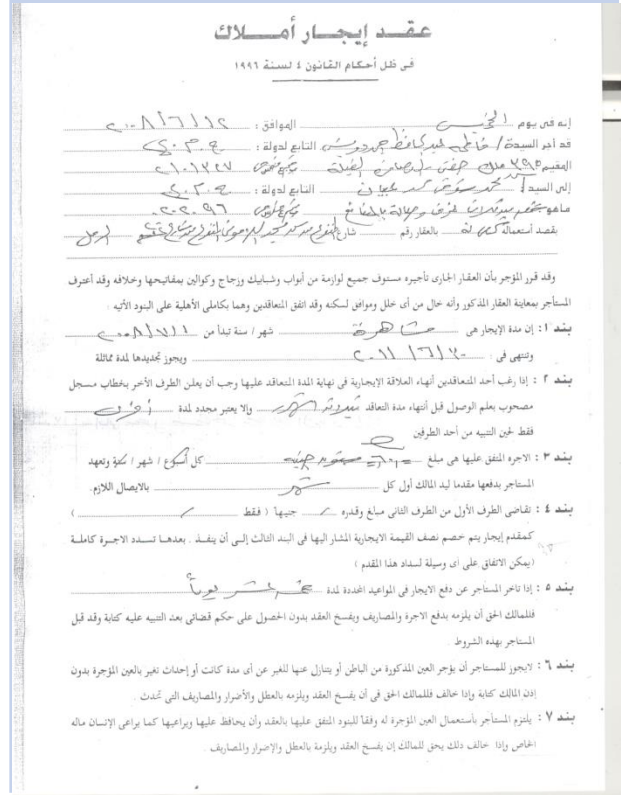 عقد إيجار أملاك
فى ظل أحكام القانون ٤ لسنة ١٩٩٦
إنه فى يوم الخميس الموافق : ٢٠٠٨/٦/١٢
قد أجر السيدة / فاطمه عبد الحافظ التابع لدولة : ج . م . ع
المقيم ٣٩٥ ملك
إلى السيد / محمد التابع لدولة : ج . م . ع
ما هو
بقصد أستعماله بالعقار رقم شارع قسم
وقد قرر المؤجر بأن العقار الجارى تأجيره مستوف جميع لوازمة من أبواب وشبابيك وزجاج وكوالين بمفاتيحها وخلافه وقد أعترف
المستأجر بمعاينة العقار المذكور وأنه خال من أى خلل وموافق لسكنه وقد اتفق المتعاقدين وهما بكاملى الأهلية على البنود الأتيه :
بند ١ : إن مدة الإيجار هى مشاهرة شهر / سنة تبدأ من ٢٠٠٨/٧/١
وتنتهى فى : ٢٠١١/٦/٣٠ ويجوز تجديدها لمدة مماثلة
بند ٢ : إذا رغب أحد المتعاقدين أنهاء العلاقة الإيجارية فى نهاية المدة المتعاقد عليها وجب أن يعلن الطرف الأخر بخطاب مسجل
مصحوب بعلم الوصول قبل أنتهاء مدة التعاقد والا يعتبر مجدد لمدة أخرى
فقط لحين التنبيه من أحد الطرفين
بند ٣ : الاجره المتفق عليها هى مبلغ جنيه كل أسبوع / شهر / سنة وتعهد
المستاجر بدفعها مقدما ليد المالك أول كل شهر بالايصال اللازم.
بند ٤ : تقاضى الطرف الأول من الطرف الثانى مبلغ وقدره جنيها ( فقط )
كمقدم إيجار يتم خصم نصف القيمة الايجارية المشار اليها فى البند الثالث إلى أن ينفذ . بعدها تسدد الاجرة كاملة
(يمكن الاتفاق على اى وسيلة لسداد هذا المقدم )
بند ٥ : إذا تاخر المستاجر عن دفع الايجار فى المواعيد المحددة لمدة خمسة عشر يوماً
فللمالك الحق أن يلزمه بدفع الاجرة والمصاريف ويفسخ العقد بدون الحصول على حكم قضائى بعد التنبيه عليه كتابة وقد قبل
المستاجر بهذه الشروط .
بند ٦ : لايجوز للمستأجر أن يؤجر العين المذكورة من الباطن أو يتنازل عنها للغير عن أى مدة كانت أو إحداث تغير بالعين المؤجرة بدون
إذن المالك كتابة وإذا خالف فللمالك الحق فى أن يفسخ العقد ويلزمه بالعطل والأضرار والمصاريف التى تحدث .
بند ٧ : يلتزم المستأجر بأستعمال العين المؤجرة له وفقاً للبنود المتفق عليها بالعقد وأن يحافظ عليها ويراعيها كما يراعى الإنسان ماله
الخاص وإذا خالف ذلك يحق للمالك إن يفسخ العقد ويلزمة بالعطل والإضرار والمصاريف .